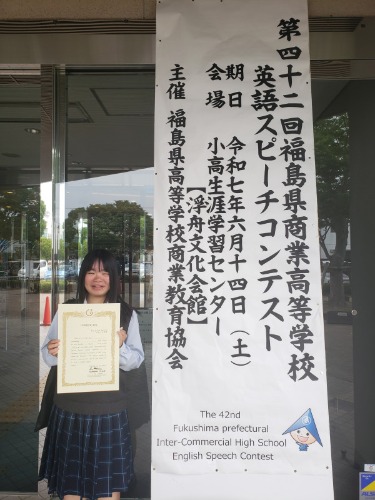 第四十二回福島県商業高等学校
英語スピーチコンテスト
期日　令和七年六月十四日（土）
会場　小高生涯学習センター
【浮舟文化会館】
主催　福島県高等学校商業教育協会
The 42nd
Fukushima prefectural
Inter-Commercial High School
English Speech Contest